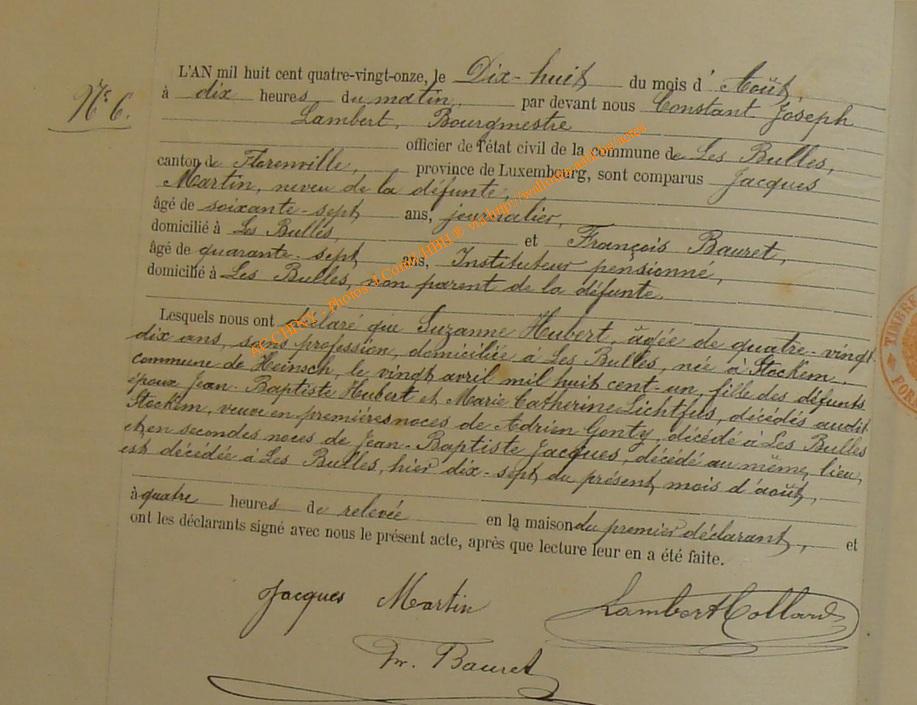 N° 6.
L'AN mil huit cent quatre-vingt-onze, le Dix-huit du mois d' Août,
à dix heures du matin, par devant nous Constant Joseph
Lambert, Bourgmestre
officier de l'état civil de la commune de Les Bulles,
canton de Florenville, province de Luxembourg, sont comparus Jacques
Martin, neveu de la défunte,
âgé de soixante-sept ans, journalier,
domicilié à Les Bulles, et François Bauret,
âgé de quarante-sept ans, Instituteur pensionné,
domicilié à Les Bulles, non parent de la défunte.
Lesquels nous ont déclaré que Suzanne Hubert, âgée de quatre-vingt-
dix ans, sans profession, domiciliée à Les Bulles, née à Stockem,
commune de Heinsch, le vingt avril mil huit cent un, fille des défunts
époux Jean-Baptiste Hubert et Marie Catherine Lichtfus, décédés audit
Stockem, veuve en premières noces de Adrien Gonty, décédé à Les Bulles
et en secondes noces de Jean-Baptiste Jacques, décédé au même lieu,
est décédée à Les Bulles, hier dix-sept du présent mois d'août,
à quatre heures de relevée en la maison du premier déclarant, et
ont les déclarants signé avec nous le présent acte, après que lecture leur en a été faite.
Jacques Martin
Lambert Collard
Fr. Bauret